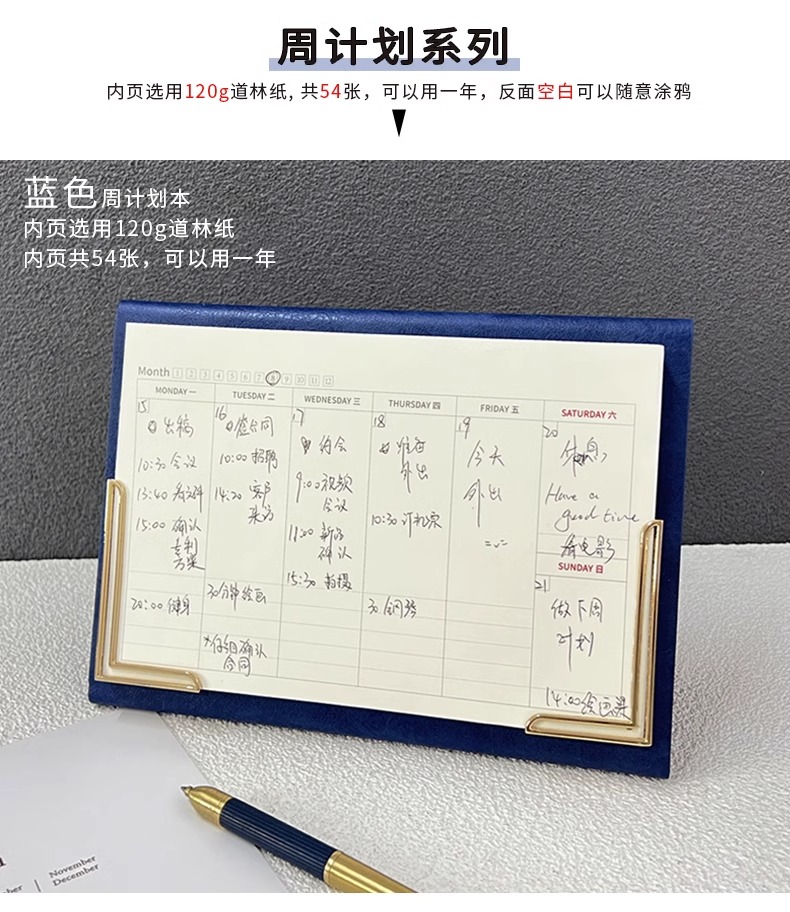 周计划系列
内页选用120g道林纸, 共54张，可以用一年，反面空白可以随意涂鸦
蓝色周计划本
内页选用120g道林纸
内页共54张，可以用一年
Month 1 2 3 4 5 6 7 8 9 10 11 12
MONDAY 一
15
出稿
10:30 会议
13:40
15:00 确认
专利
方案
20:00 健身
TUESDAY 二
16
签合同
10:00 招聘
14:20 客户
来访
30分钟绘画
合同
WEDNESDAY 三
17
约会
9:00 视频
会议
11:00 新品
确认
15:30 拍摄
THURSDAY 四
18
准备
外出
10:30 订机票
30 钢琴
FRIDAY 五
19
今天
外出
SATURDAY 六
20
休息
Have a
good time
看电影
SUNDAY 日
21
做下周
计划
14:00 绘画课
November
December